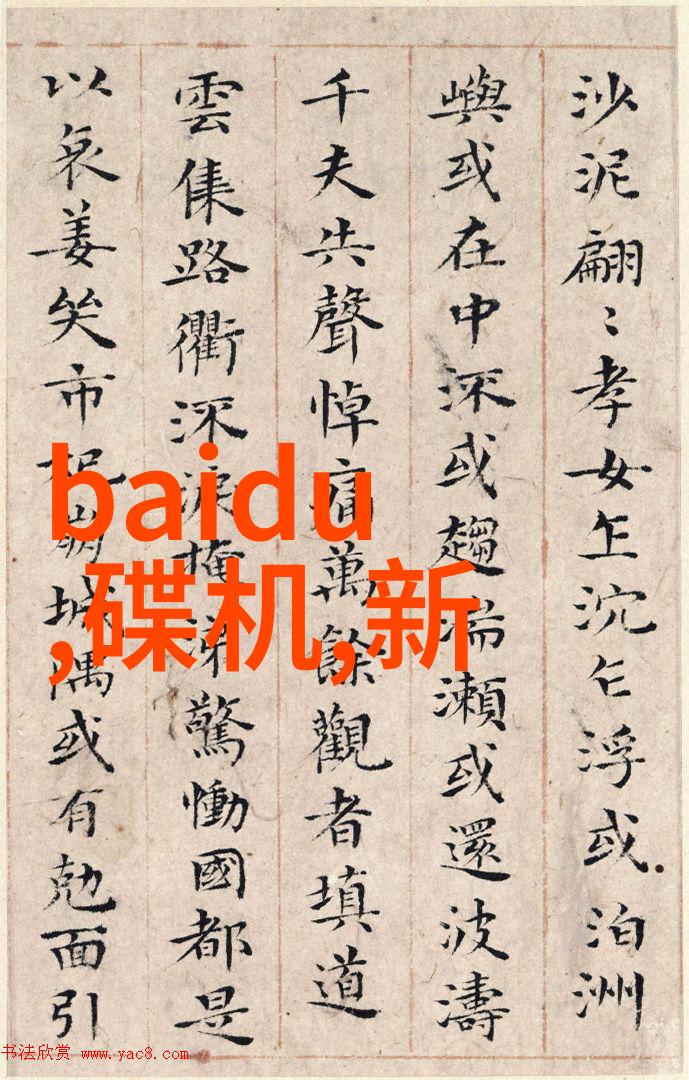 沙泥翩〻孝女乍沉乍浮或泊洲
嶼或在中㳅或趨湍瀬或還波濤
千夫失聲悼痛萬餘觀者填道
雲集路衢㳅淚掩涕驚慟國都是
以哀姜哭市杞崩城隅或有尅面引
baidu
,碟机,新
书法欣赏 www.yac8.com